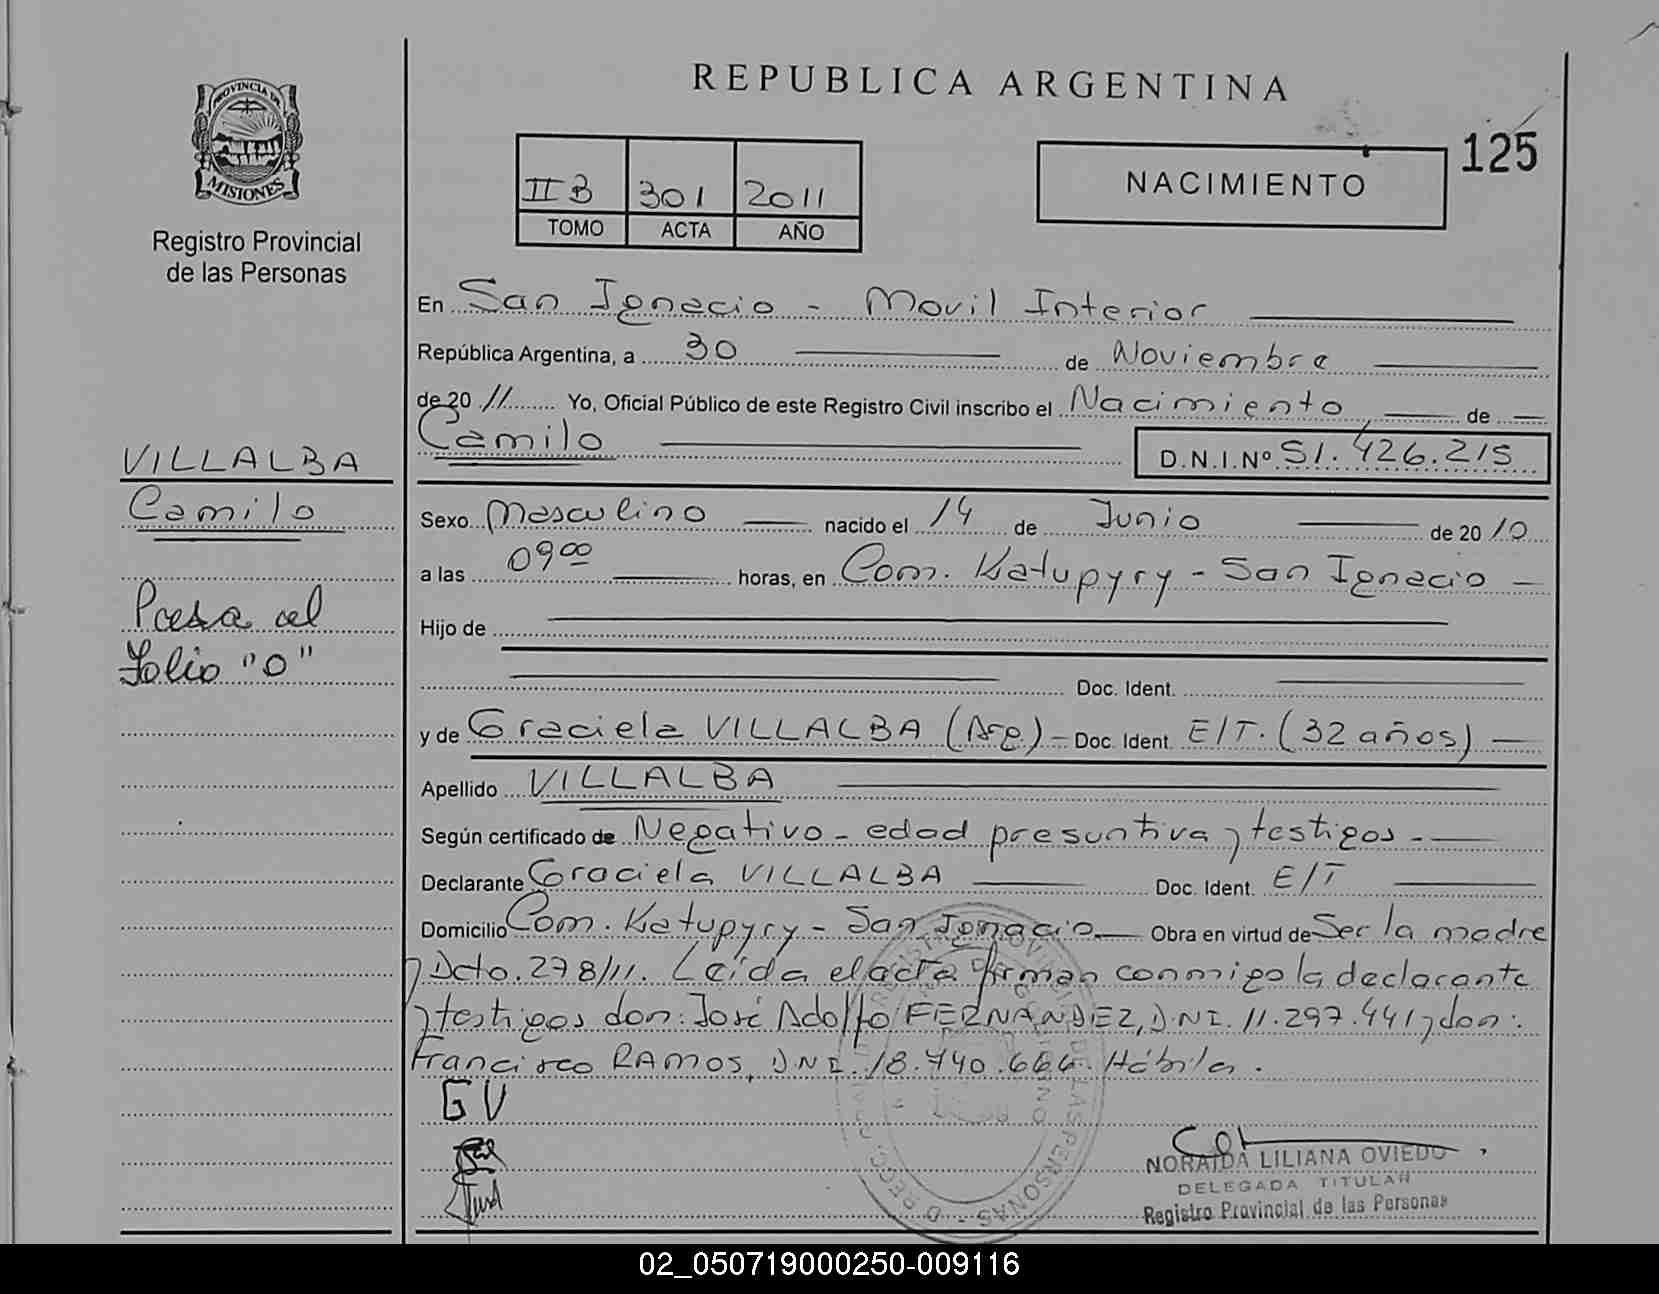 REPUBLICA ARGENTINA
PROVINCIA DE
MISIONES
Registro Provincial
de las Personas
II B 301 2011
TOMO ACTA AÑO
NACIMIENTO
125
En San Ignacio - Movil Interior
República Argentina, a 30 de Noviembre
de 20 11 Yo, Oficial Público de este Registro Civil inscribo el Nacimiento de
Camilo D.N.I.Nº 51.426.215
VILLALBA
Camilo
Pasa al
folio "0"
Sexo Masculino nacido el 14 de Junio de 20 10
a las 09 00 horas, en Com. Katupyry - San Ignacio -
Hijo de
Doc. Ident.
y de Graciela VILLALBA (Arg.) - Doc. Ident. E/T. (32 años) -
Apellido VILLALBA
Según certificado de Negativo - edad presuntiva y testigos -
Declarante Graciela VILLALBA Doc. Ident. E/T
Domicilio Com. Katupyry - San Ignacio Obra en virtud de Ser la madre
y Dcto. 278/11. Leída el acta firman conmigo la declarante
y testigos don: José Adolfo FERNANDEZ, D.N.I. 11.297.441 y don:
Francisco RAMOS, D.N.I. 18.740.666.
GV
NORAIDA LILIANA OVIEDO
DELEGADA TITULAR
Registro Provincial de las Personas
02_050719000250-009116